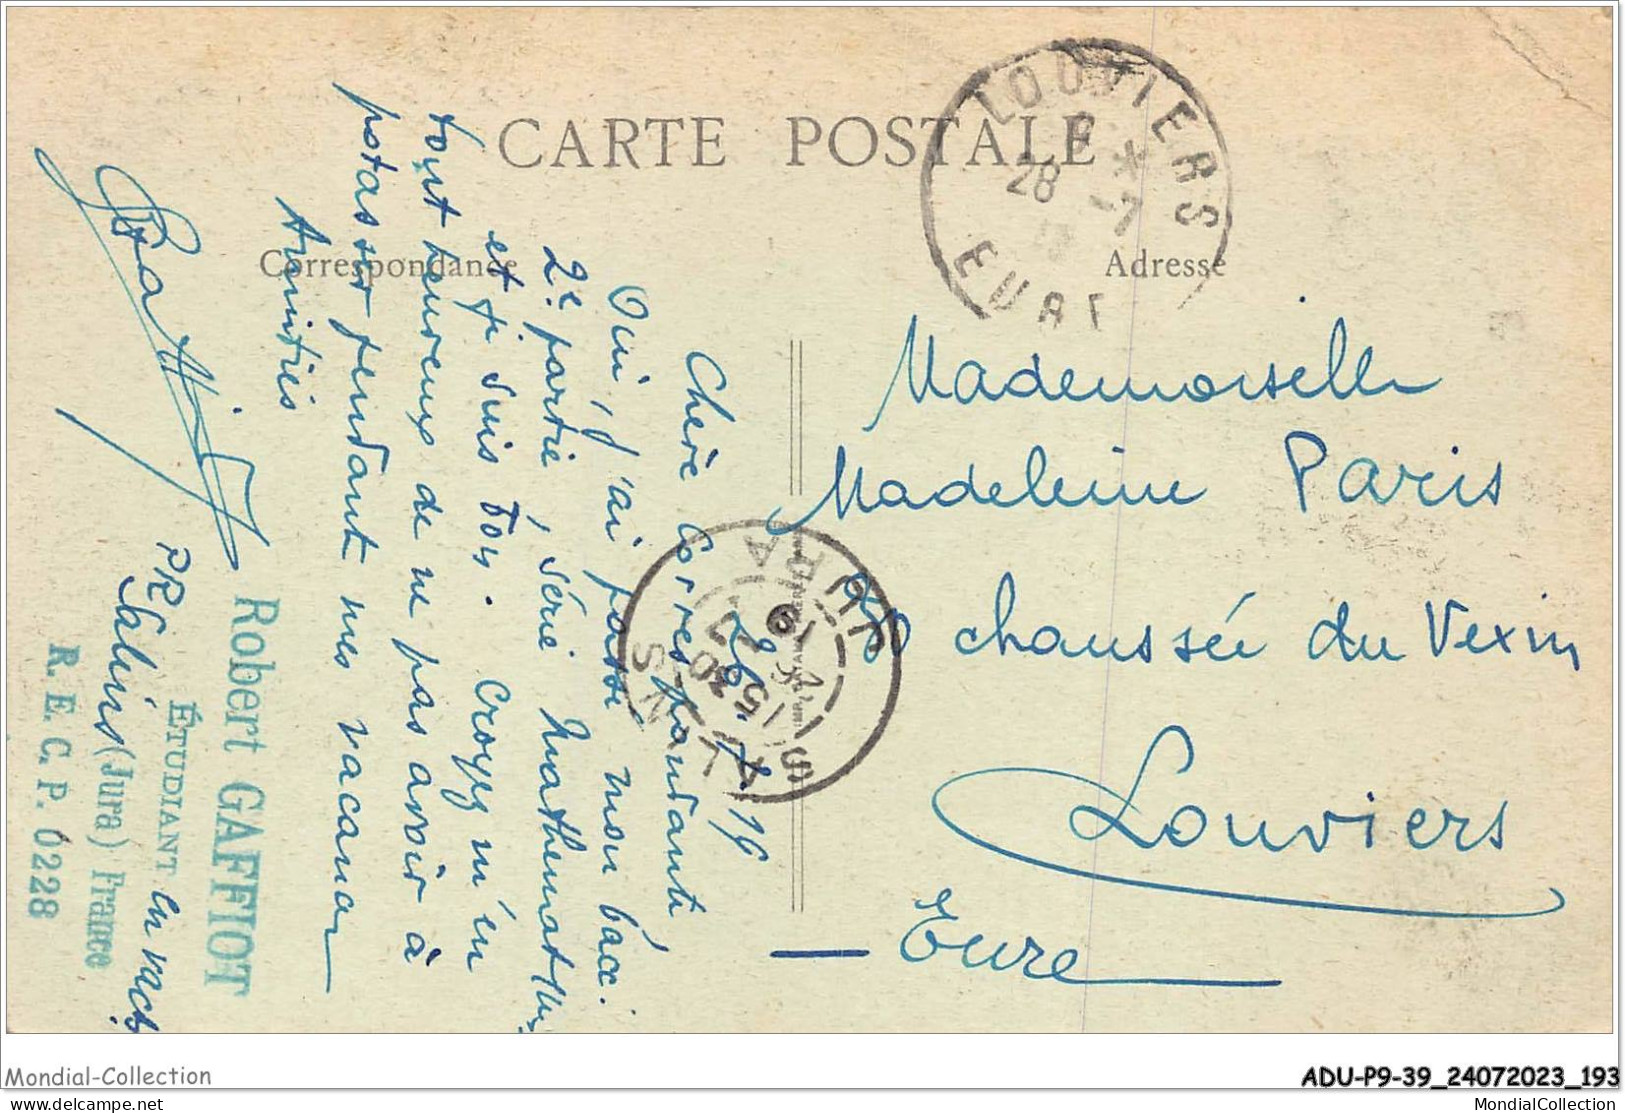 CARTE POSTALE
Correspondance
Adresse
LOUVIERS
28 -7
EURE
Mademoiselle
Madeleine Paris
chaussée du Vexin
Louviers
Eure
SALINS
JURA
15 30
19
Chère Correspondante
Oui, j'ai passé mon bacc.
2e partie, série mathématiq.
et j'y suis bon. Croyez m'en
tout heureux de ne pas avoir à
potasser pendant mes vacances
Amitiés
Robert GAFFIOT
ÉTUDIANT en vacs
PR Salins (Jura) France
R. E. C. P. 0228
Mondial-Collection
ADU-P9-39_24072023_193
delcampe.net
MondialCollection